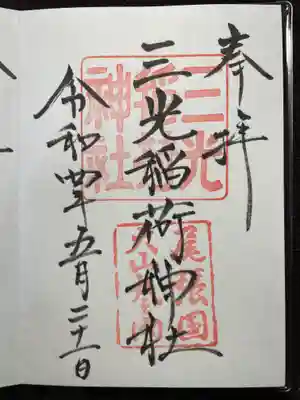 奉拝
三光稲荷神社
令和四年五月二十一日
三光稲荷神社
尾張国犬山